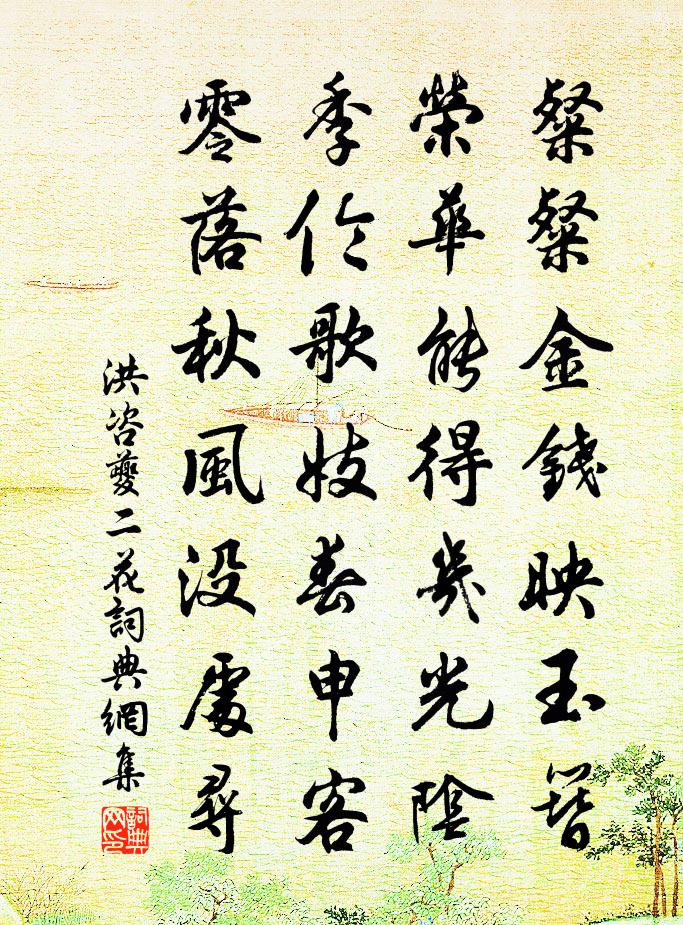 粲粲金錢映玉簪
榮華能得幾光陰
季伦歌妓春申客
零落秋風没處尋
洪咨夔二花詞典網集
詞典网印